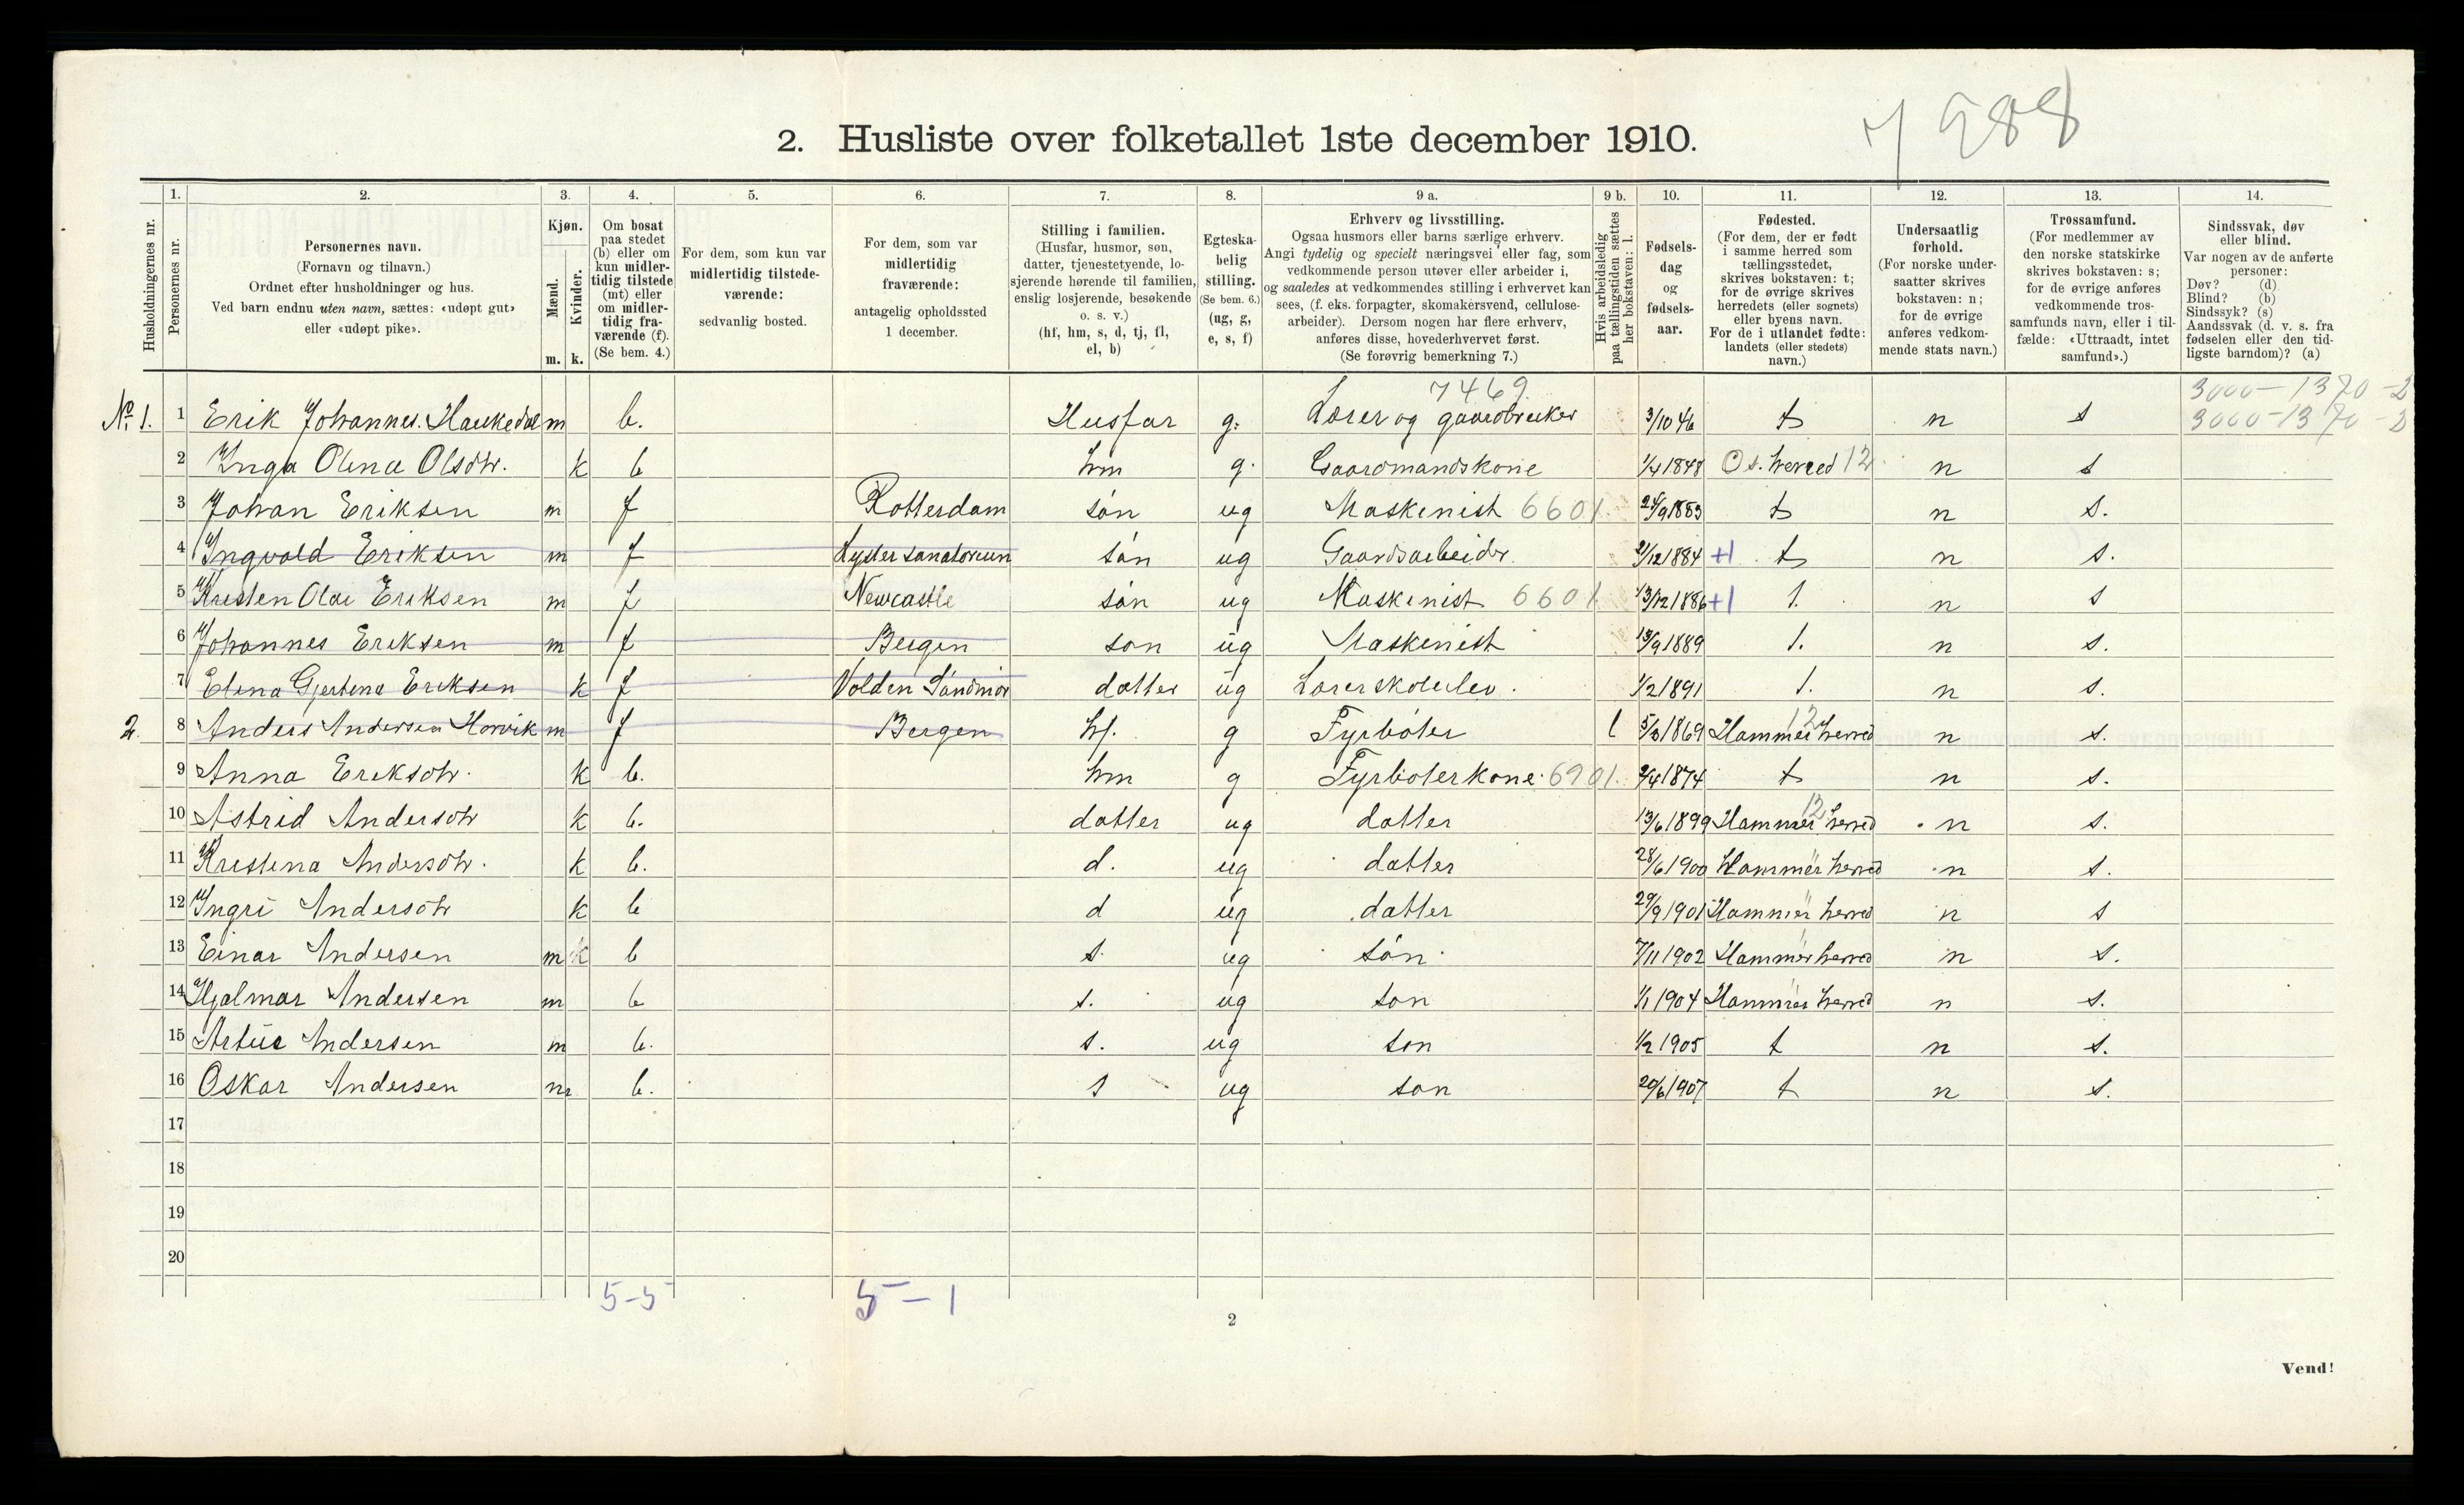 7 988
2. Husliste over folketallet 1ste december 1910.
Husholdningernes nr.
1.
Personernes nr.
2.
Personernes navn.
(Fornavn og tilnavn.)
Ordnet efter husholdninger og hus.
Ved barn endnu uten navn, sættes: «udøpt gut»
eller «udøpt pike».
3.
Kjøn.
Mænd.
Kvinder.
m. k.
4.
Om bosat
paa stedet
(b) eller om
kun midler-
tidig tilstede
(mt) eller
om midler-
tidig fra-
værende (f).
(Se bem. 4.)
5.
For dem, som kun var
midlertidig tilstede-
værende:
sedvanlig bosted.
6.
For dem, som var
midlertidig
fraværende:
antagelig opholdssted
1 december.
7.
Stilling i familien.
(Husfar, husmor, søn,
datter, tjenestetyende, lo-
sjerende hørende til familien,
enslig losjerende, besøkende
o. s. v.)
(hf, hm, s, d, tj, fl,
el, b)
8.
Egteska-
belig
stilling.
(Se bem. 6.)
(ug, g,
e, s, f)
9 a.
Erhverv og livsstilling.
Ogsaa husmors eller barns særlige erhverv.
Angi tydelig og specielt næringsvei eller fag, som
vedkommende person utøver eller arbeider i,
og saaledes at vedkommendes stilling i erhvervet kan
sees, (f. eks. forpagter, skomakersvend, cellulose-
arbeider). Dersom nogen har flere erhverv,
anføres disse, hovederhvervet først.
(Se forøvrig bemerkning 7.)
9 b.
Hvis arbeidsledig
paa tællingstiden sættes
her bokstaven: l.
10.
Fødsels-
dag
og
fødsels-
aar.
11.
Fødested.
(For dem, der er født
i samme herred som
tællingsstedet,
skrives bokstaven: t;
for de øvrige skrives
herredets (eller sognets)
eller byens navn.
For de i utlandet fødte:
landets (eller stedets)
navn.)
12.
Undersaatlig
forhold.
(For norske under-
saatter skrives
bokstaven: n;
for de øvrige
anføres vedkom-
mende stats navn.)
13.
Trossamfund.
(For medlemmer av
den norske statskirke
skrives bokstaven: s;
for de øvrige anføres
vedkommende tros-
samfunds navn, eller i til-
fælde: «Uttraadt, intet
samfund».)
14.
Sindssvak, døv
eller blind.
Var nogen av de anførte
personer:
Døv? (d)
Blind? (b)
Sindssyk? (s)
Aandssvak (d. v. s. fra
fødselen eller den tid-
ligste barndom)? (a)
7469 3000-1370-2
No 1. 1 Erik Johannes. Haukedal m b. Husfar g. Lærer og gaardbruker 3/10 46 t n s 3000-1370-2
2 Inga Olena Olsdtr. k b hm g. Gaardmandskone 1/4 1848 Os. herred 12 n s
3 Johan Eriksen m f Rotterdam søn ug Maskinist 6601 24/9 1883 t n s.
4 Ingvald Eriksen m f Lyster sanatorium søn ug Gaardsarbeider. 2/12 1884 +1 t n s.
5 Kristen Olai Eriksen m f Newcastle søn ug Maskinist 6601 13/12 1886 +1 t. n s
6 Johannes Eriksen m f Bergen søn ug Maskinist 13/9 1889 t. n s.
7 Elina Gjertina Eriksen k f Volden Søndmør datter ug Lærerskoleelev. 1/2 1891 t. n s.
2. 8 Anders Andersen Horvik m f Bergen hf. g Fyrbøter l 5/8 1869 Hammer herred 12 n s.
9 Anna Eriksdtr. k b. hm g Fyrbøterkone 6901. 2/4 1874 t n s.
10 Astrid Andersdtr k b. datter ug datter 13/6 1899 Hammer herred 12 n s.
11 Kristina Andersdtr. k b. d. ug datter 28/6 1900 Hammer herred n s.
12 Ingri Andersdtr k b d ug datter 29/9 1901 Hammer herred n s
13 Einar Andersen m k b s. ug søn 7/11 1902 Hammer herred n s.
14 Hjalmar Andersen m b s. ug søn 1/1 1904 Hammer herred n s.
15 Artur Andersen m b. s. ug søn 1/2 1905 t n s.
16 Oskar Andersen m b. s ug søn 20/6 1907 t n s.
17
18
19
20
5-5 5-1
2
Vend!